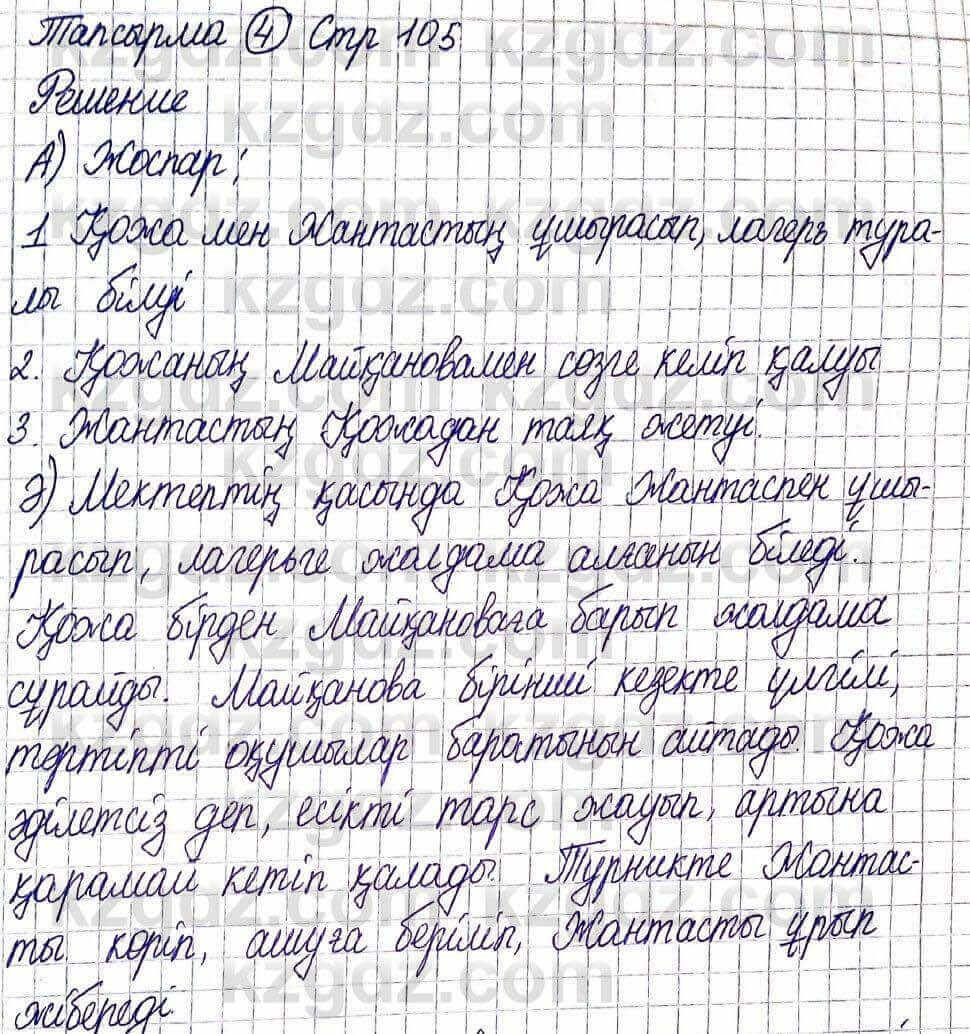 Тапсырма 4 Стр 105
Решение
А) Жоспар:
1 Қожа мен Жантастың ұшырасып, лагерь тура-
лы білуі
2. Қожаның Майқановамен сөзге келіп қалуы
3. Жантастың Қожадан таяқ жетуі.
Ә) Мектептің қасында Қожа Жантаспен ұшы-
расып, лагерьге жолдама алғанын біледі.
Қожа бірден Майқановаға барып жолдама
сұрайды. Майқанова бірінші кезекте үлгілі,
тәртіпті оқушылар баратынын айтады. Қожа
әділетсіз деп, есікті тарс жауып, артына
қарамай кетіп қалады. Турникте Жантас-
ты көріп, ашуға беріліп, Жантасты ұрып
жібереді
kzgdz.com